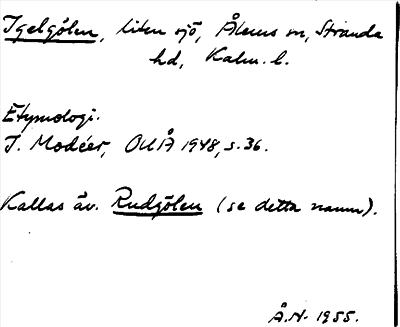 Igelgölen, liten sjö, Ålems sn, Stranda
hd, Kalm. l.
Etymologi.
I. Modéer, OUÅ 1948, s. 36.
Kallas äv. Rudgölen (se detta namn).
Å.H. 1955.